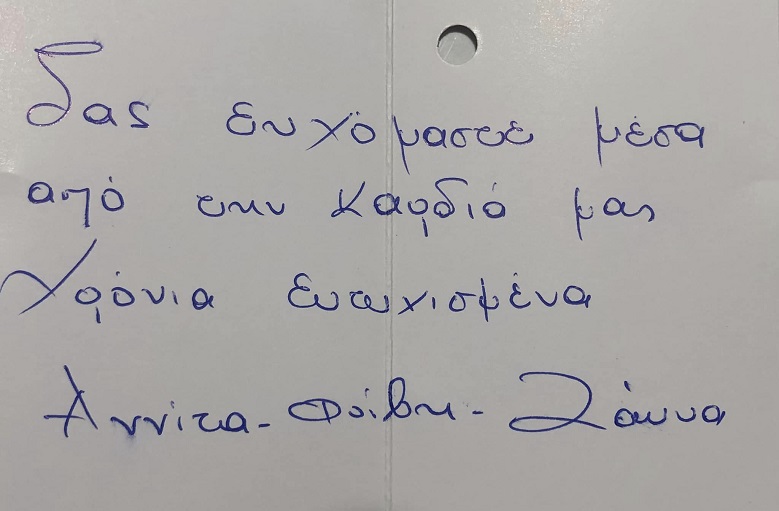 Σας ευχόμαστε μέσα
από την καρδιά μας
Χρόνια ευτυχισμένα
Αννίτα - Φοίβη - Σάννα